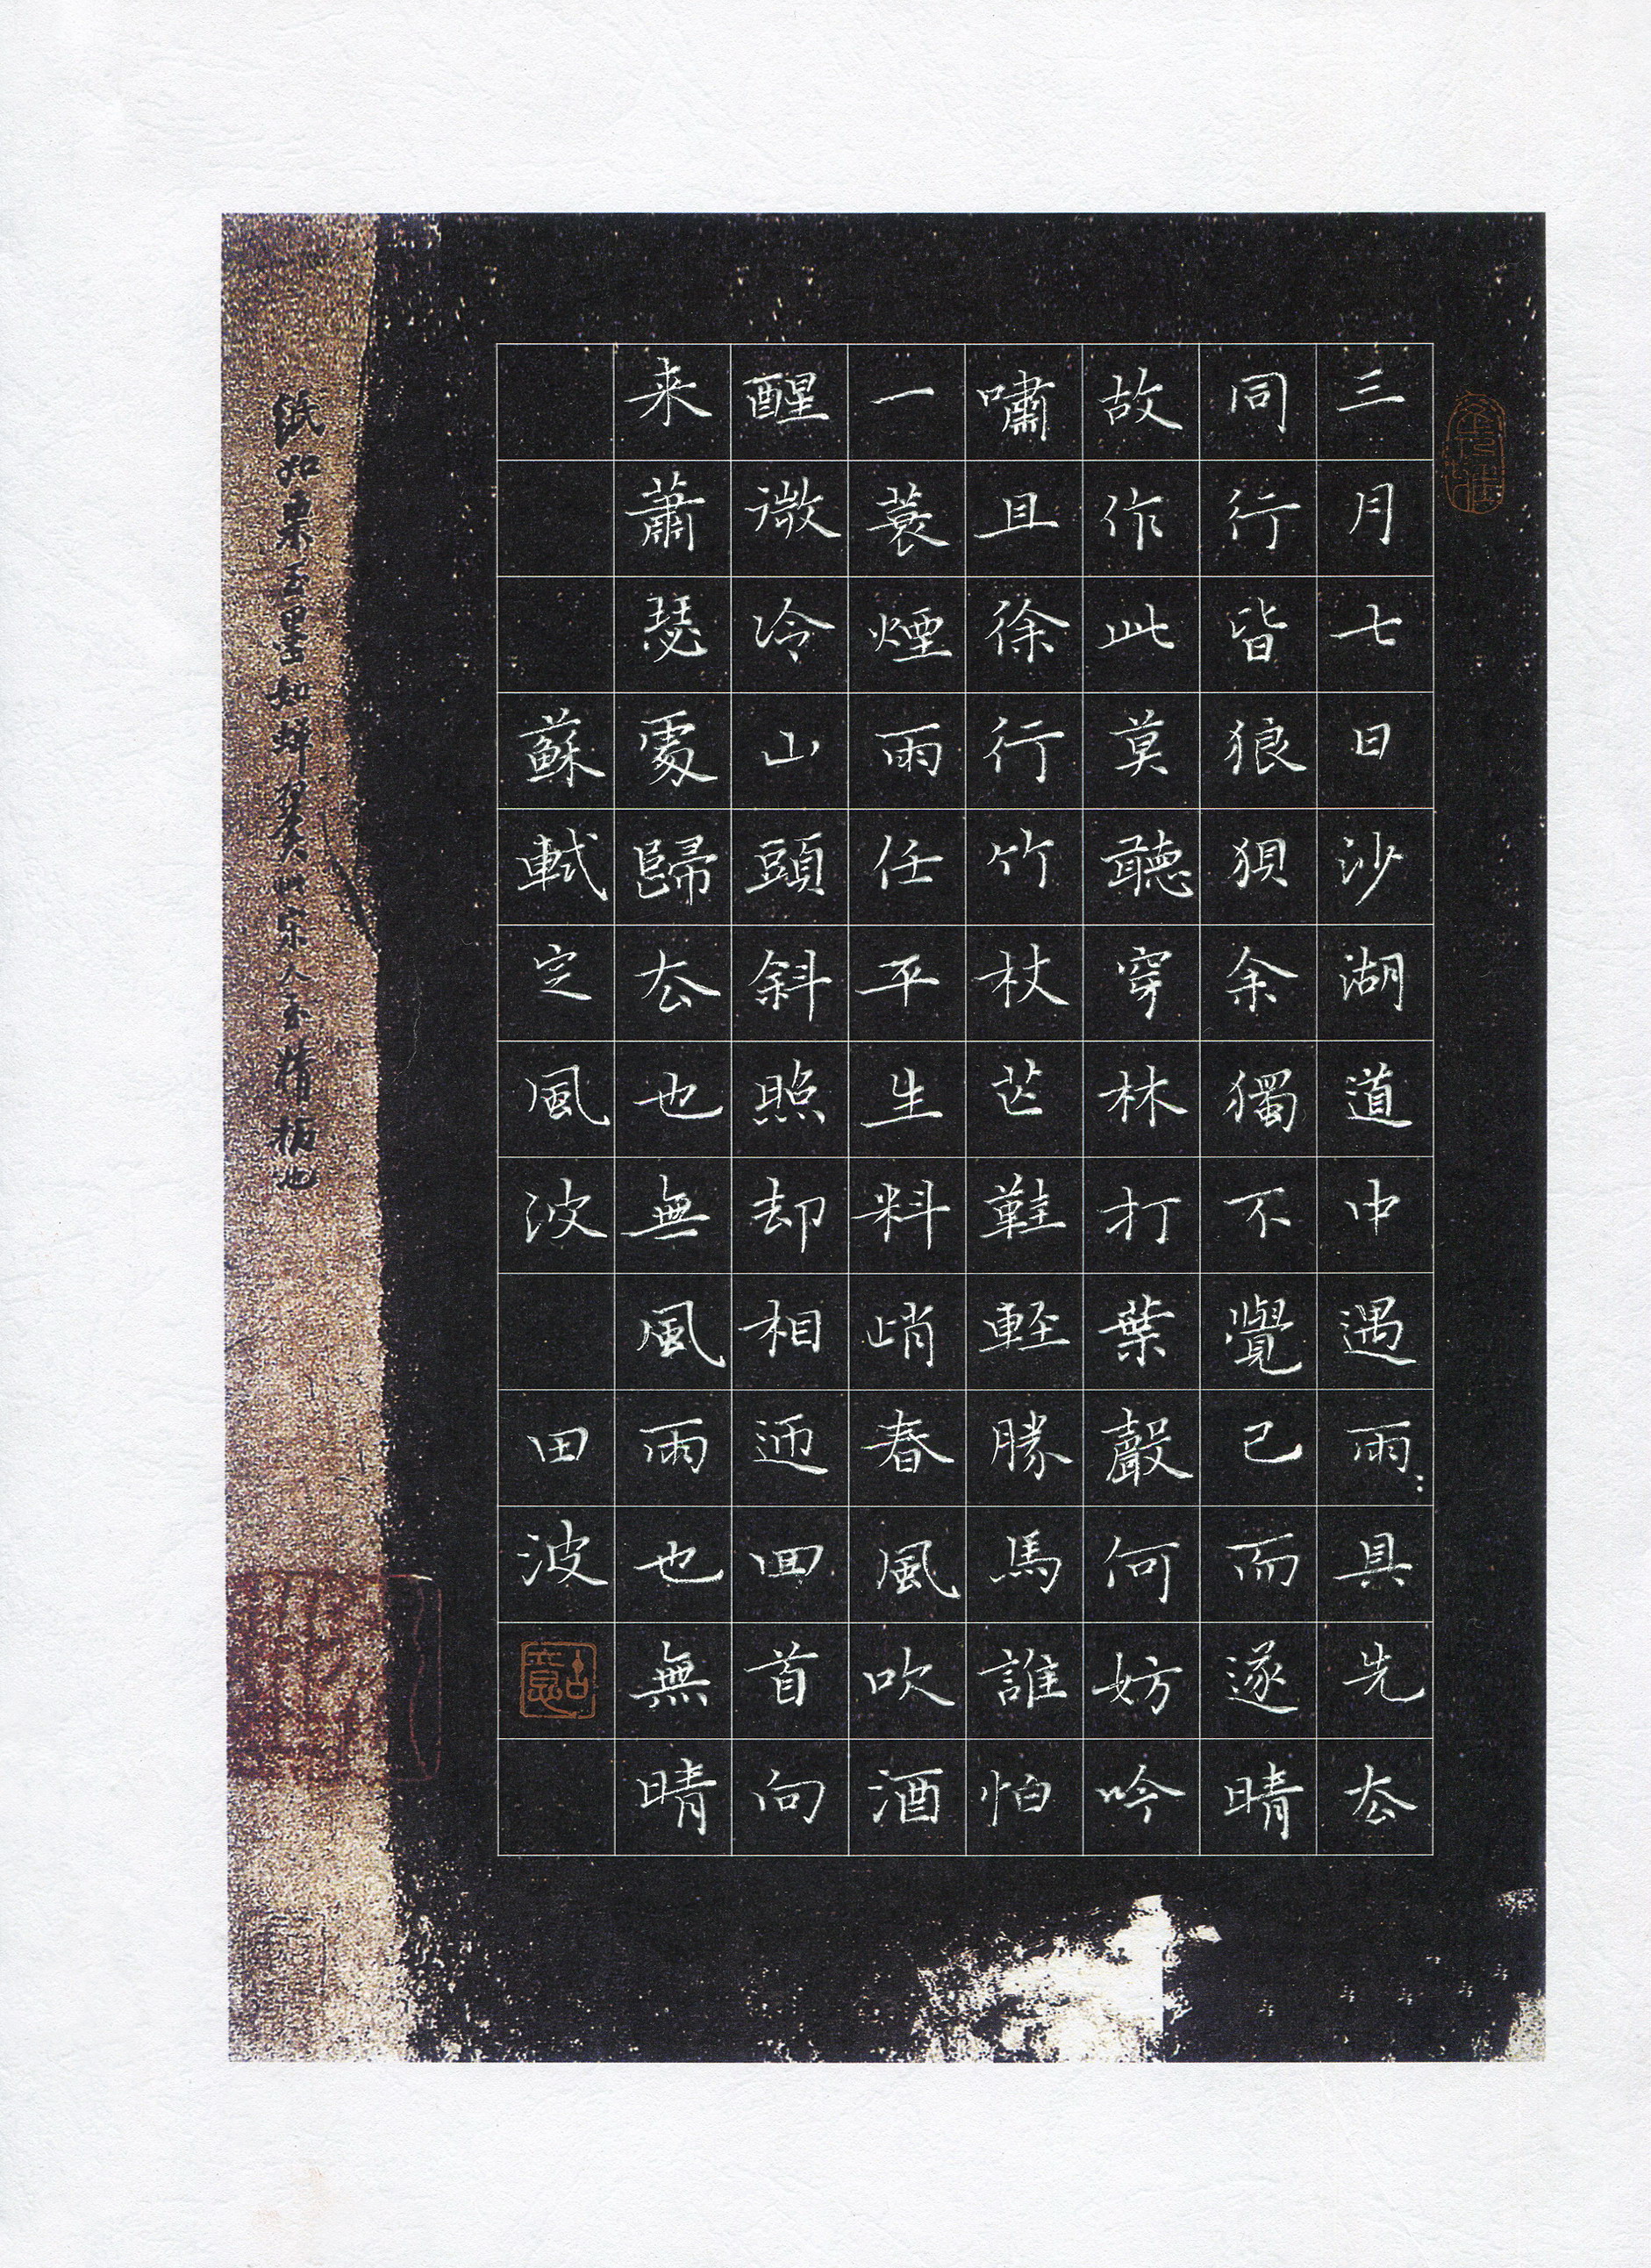 三月七日沙湖道中遇雨:具先去
同行皆狼狽余獨不覺已而遂晴
故作此莫聽穿林打葉聲何妨吟
嘯且徐行竹杖芒鞋輕勝馬誰怕
一蓑煙雨任平生料峭春風吹酒
醒微冷山頭斜照却相迎回首向
来蕭瑟處歸去也無風雨也無晴
蘇軾定風波 田波
紙如玉墨如蟬翼此宋人精拓也